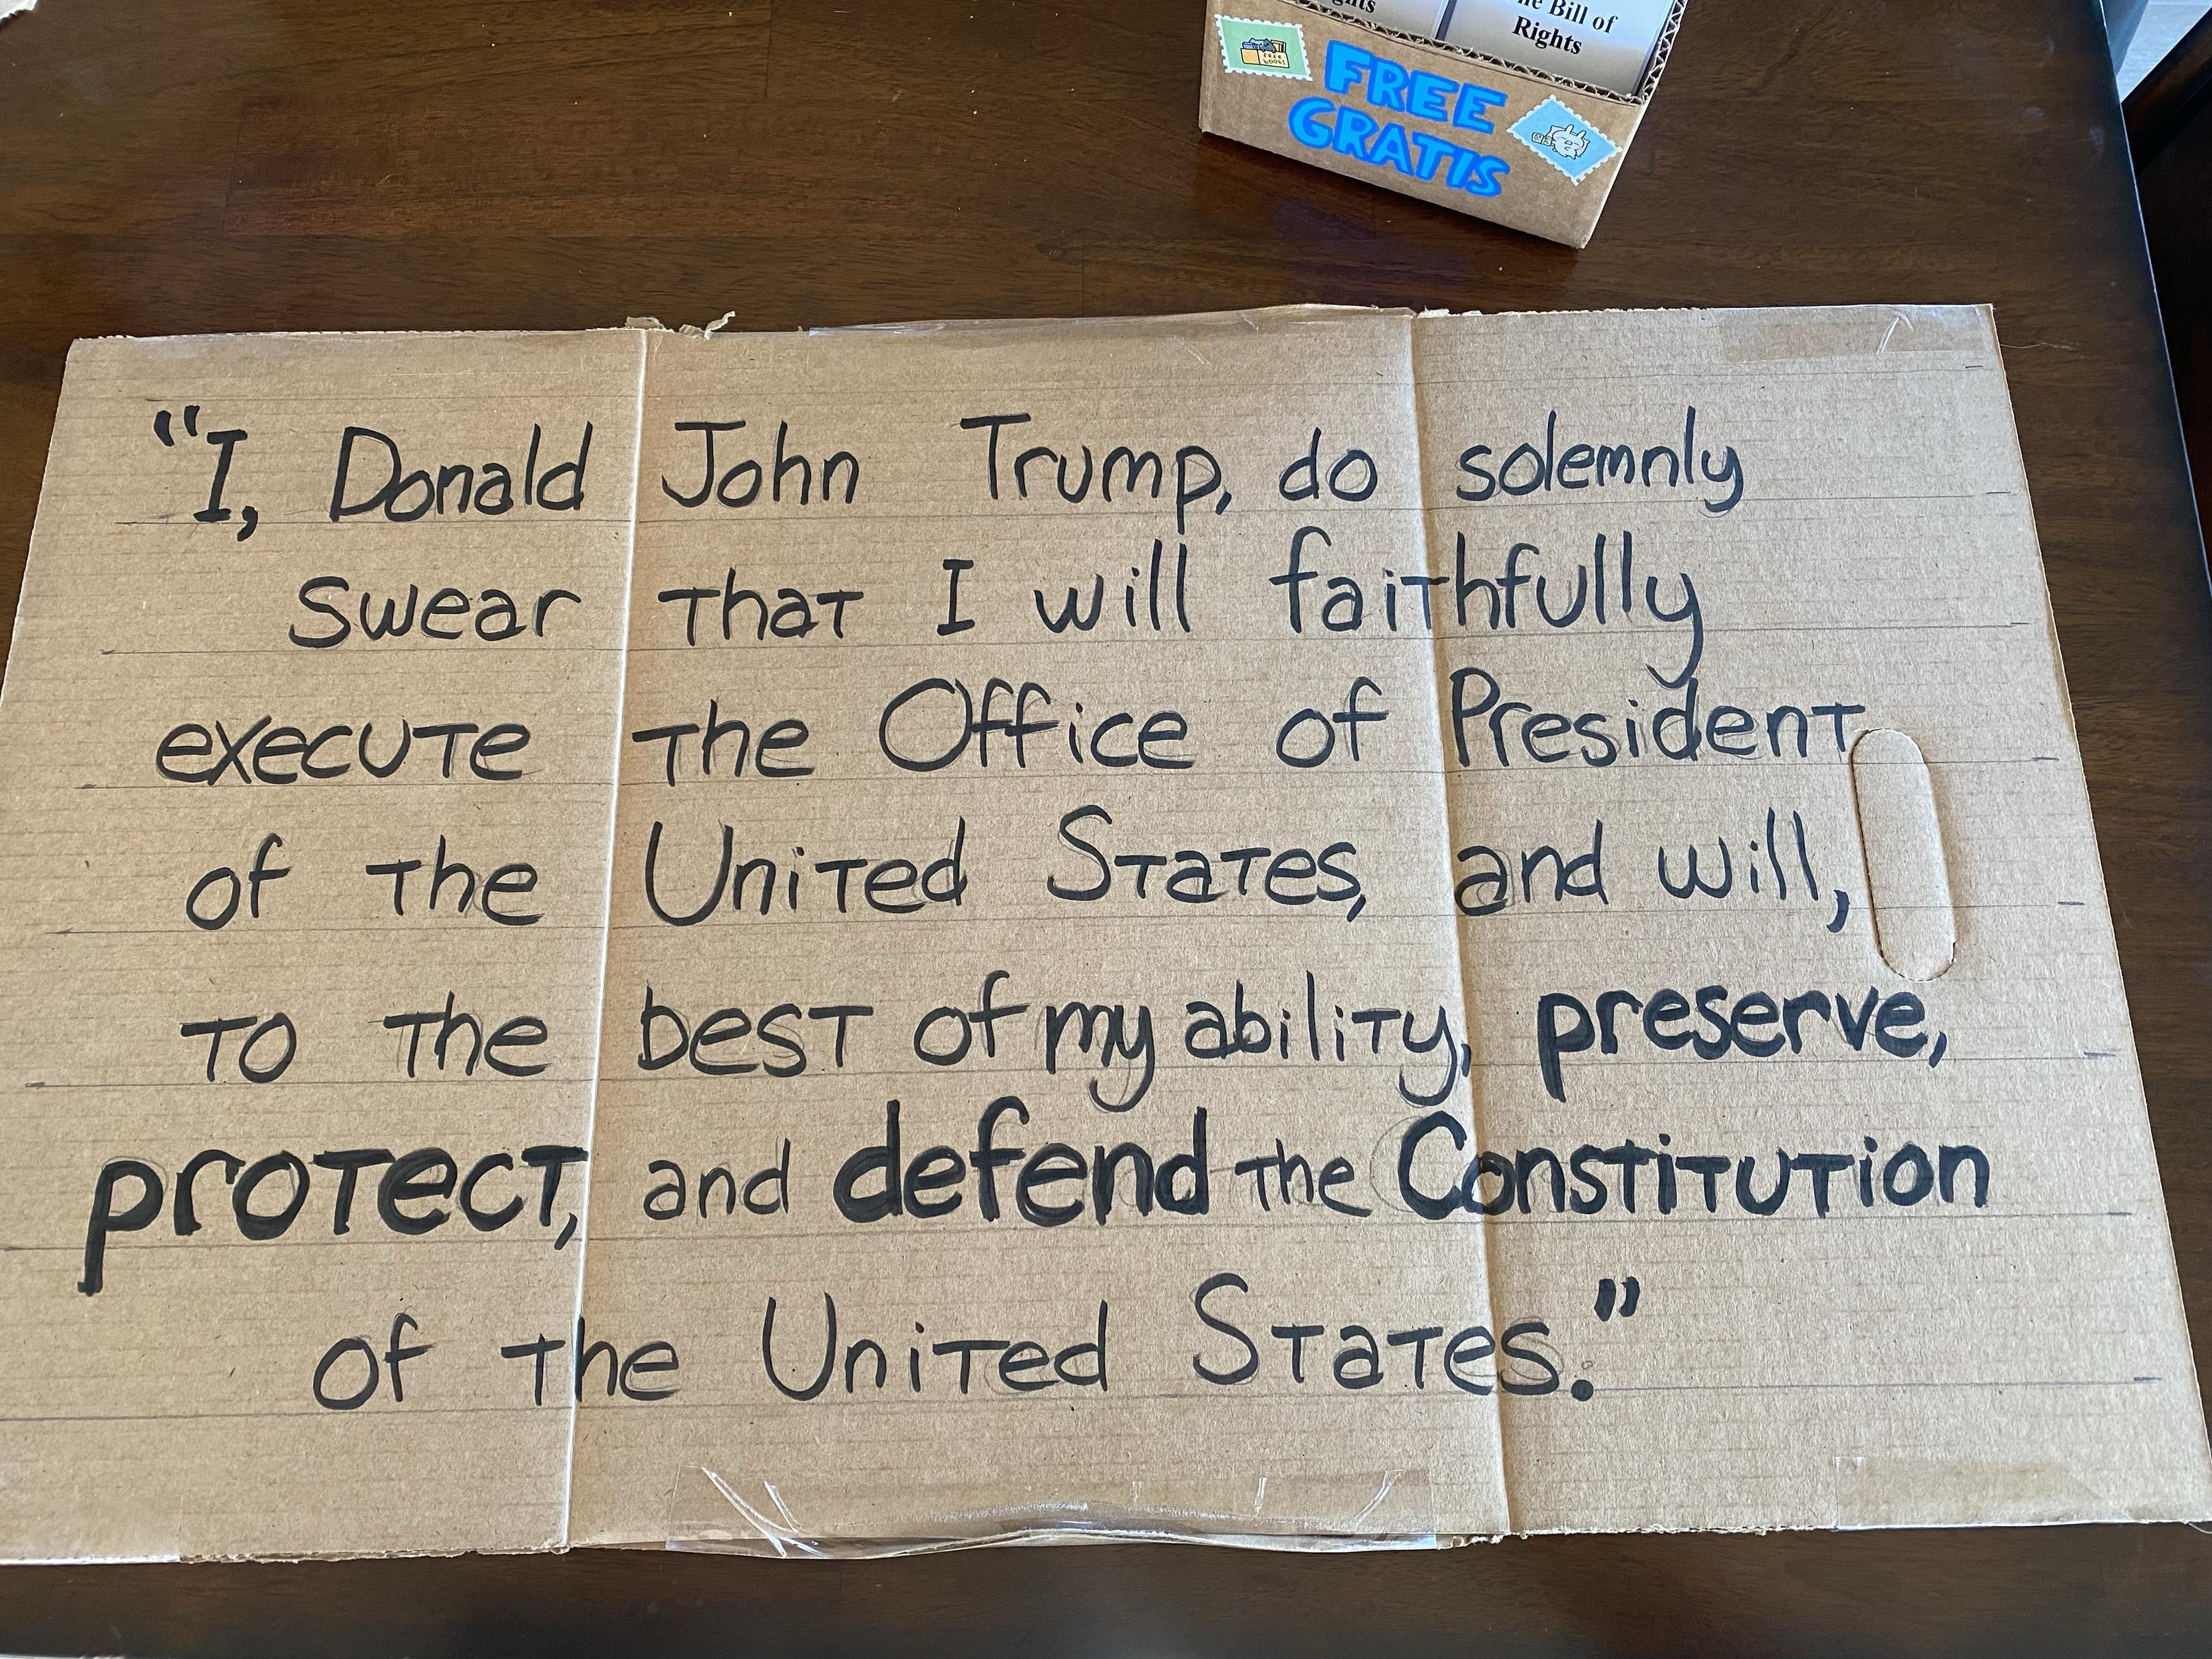 ghts
he Bill of
Rights
FREE
GRATIS
FREE
BOOKS
"I, Donald John Trump, do solemnly
swear that I will faithfully
execute the Office of President
of the United States, and will,
to the best of my ability, preserve,
protect, and defend the Constitution
of the United States."